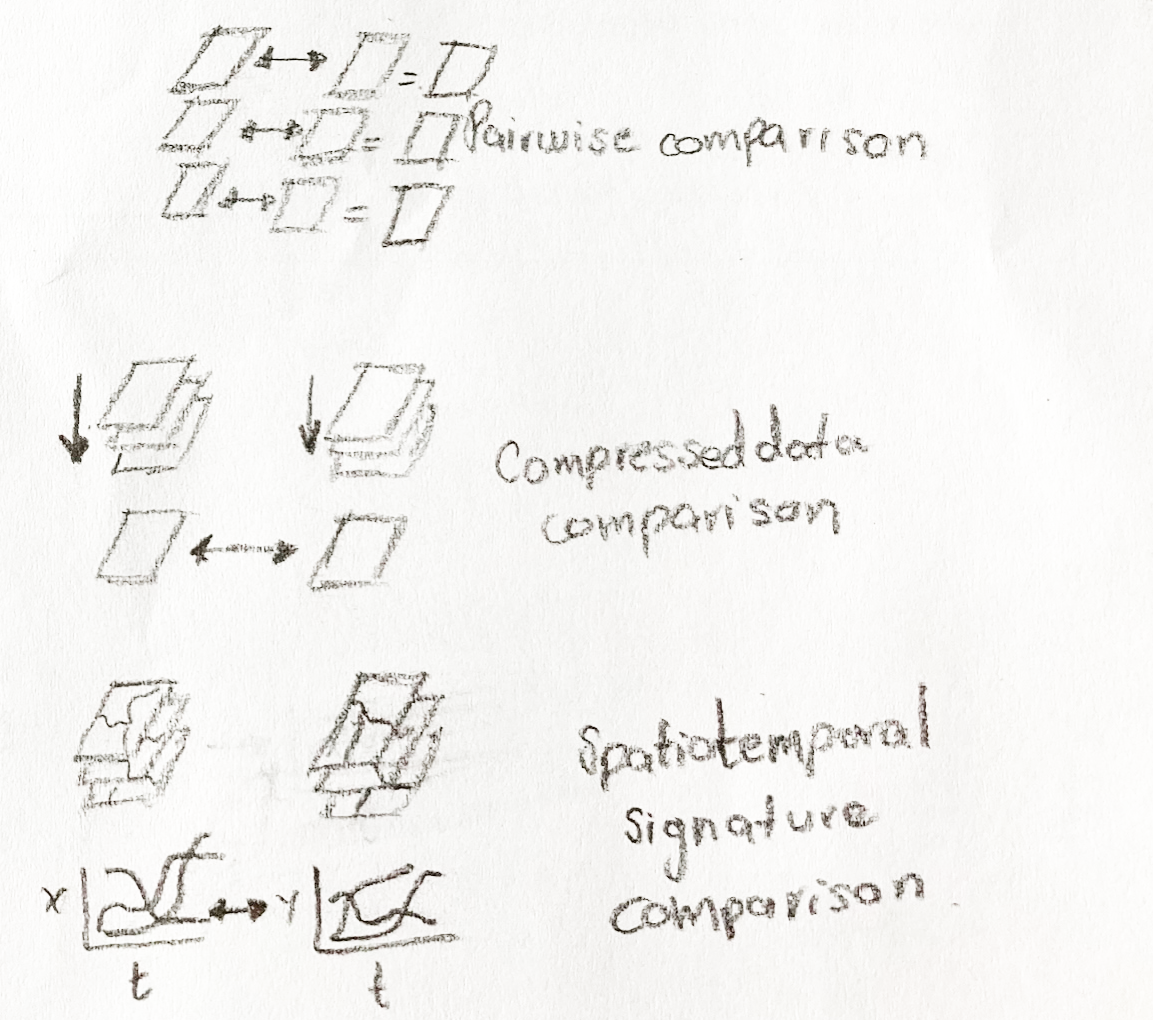 =
Pairwise comparison
=
=
Compressed data
comparison
Spatiotemporal
signature
comparison
X
Y
t
t